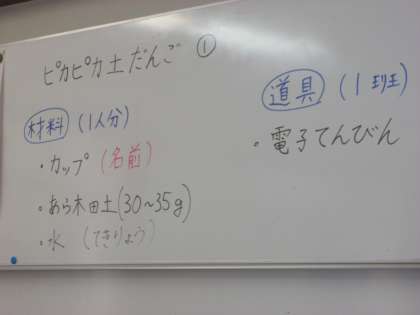 ピカピカ土だんご ①
材料 (1人分)
・カップ (名前)
・あら木田土(30〜35g)
・水 (てきりょう)
道具 (1班)
・電子てんびん